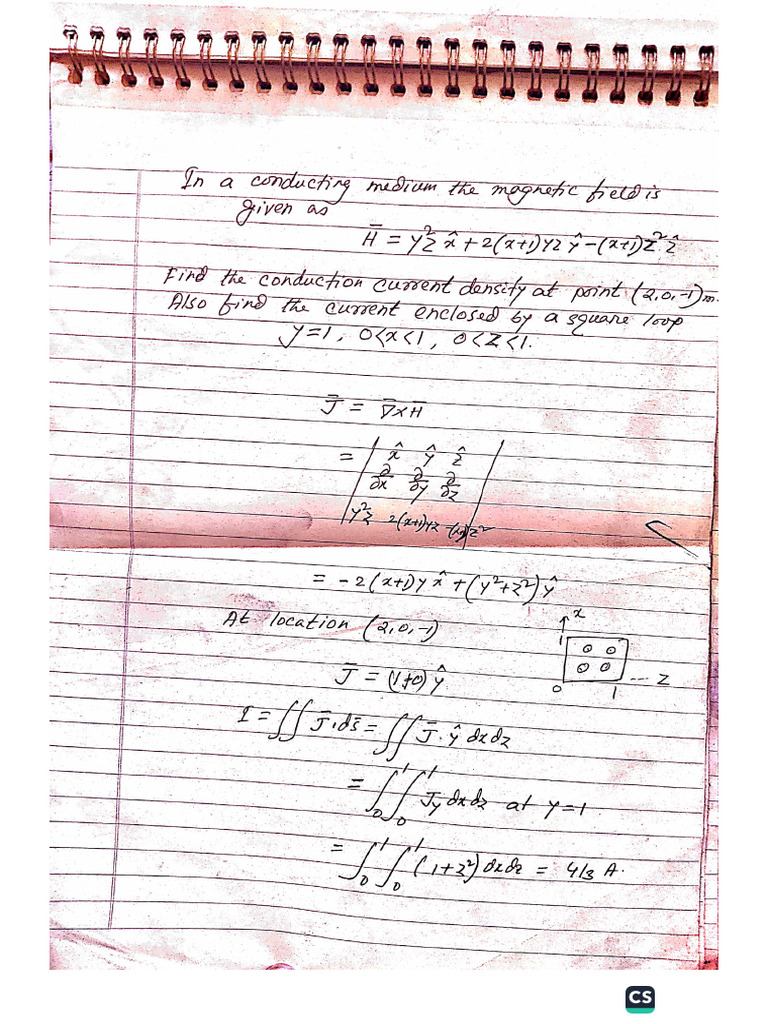 In a conducting medium the magnetic field is
given as
H̄ = y²z x̂ + 2(x+1)yz ŷ - (x+1)z² ẑ
Find the conduction current density at point (2,0,-1)m.
Also find the current enclosed by a square loop
y=1, 0<x<1, 0<z<1.
J̄ = ∇̄×H̄
= | x̂ ŷ ẑ |
| ∂/∂x ∂/∂y ∂/∂z |
| y²z 2(x+1)yz -(x+1)z² |
= -2(x+1)y x̂ + (y²+z²) ŷ
At location (2,0,-1)
J̄ = (1+0) ŷ
x
1
0 1 --- z
I = ∬ J̄.ds̄ = ∬ J̄.ŷ dxdz
= ∫₀¹ ∫₀¹ Jy dxdz at y=1
= ∫₀¹ ∫₀¹ (1+z²) dxdz = 4/3 A.
CS